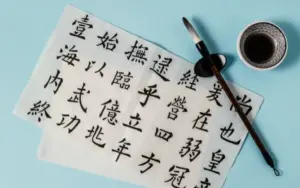 也皇
爰在弱冠
經營四方
逮乎立年
撫臨億兆
始以武功
壹海內終